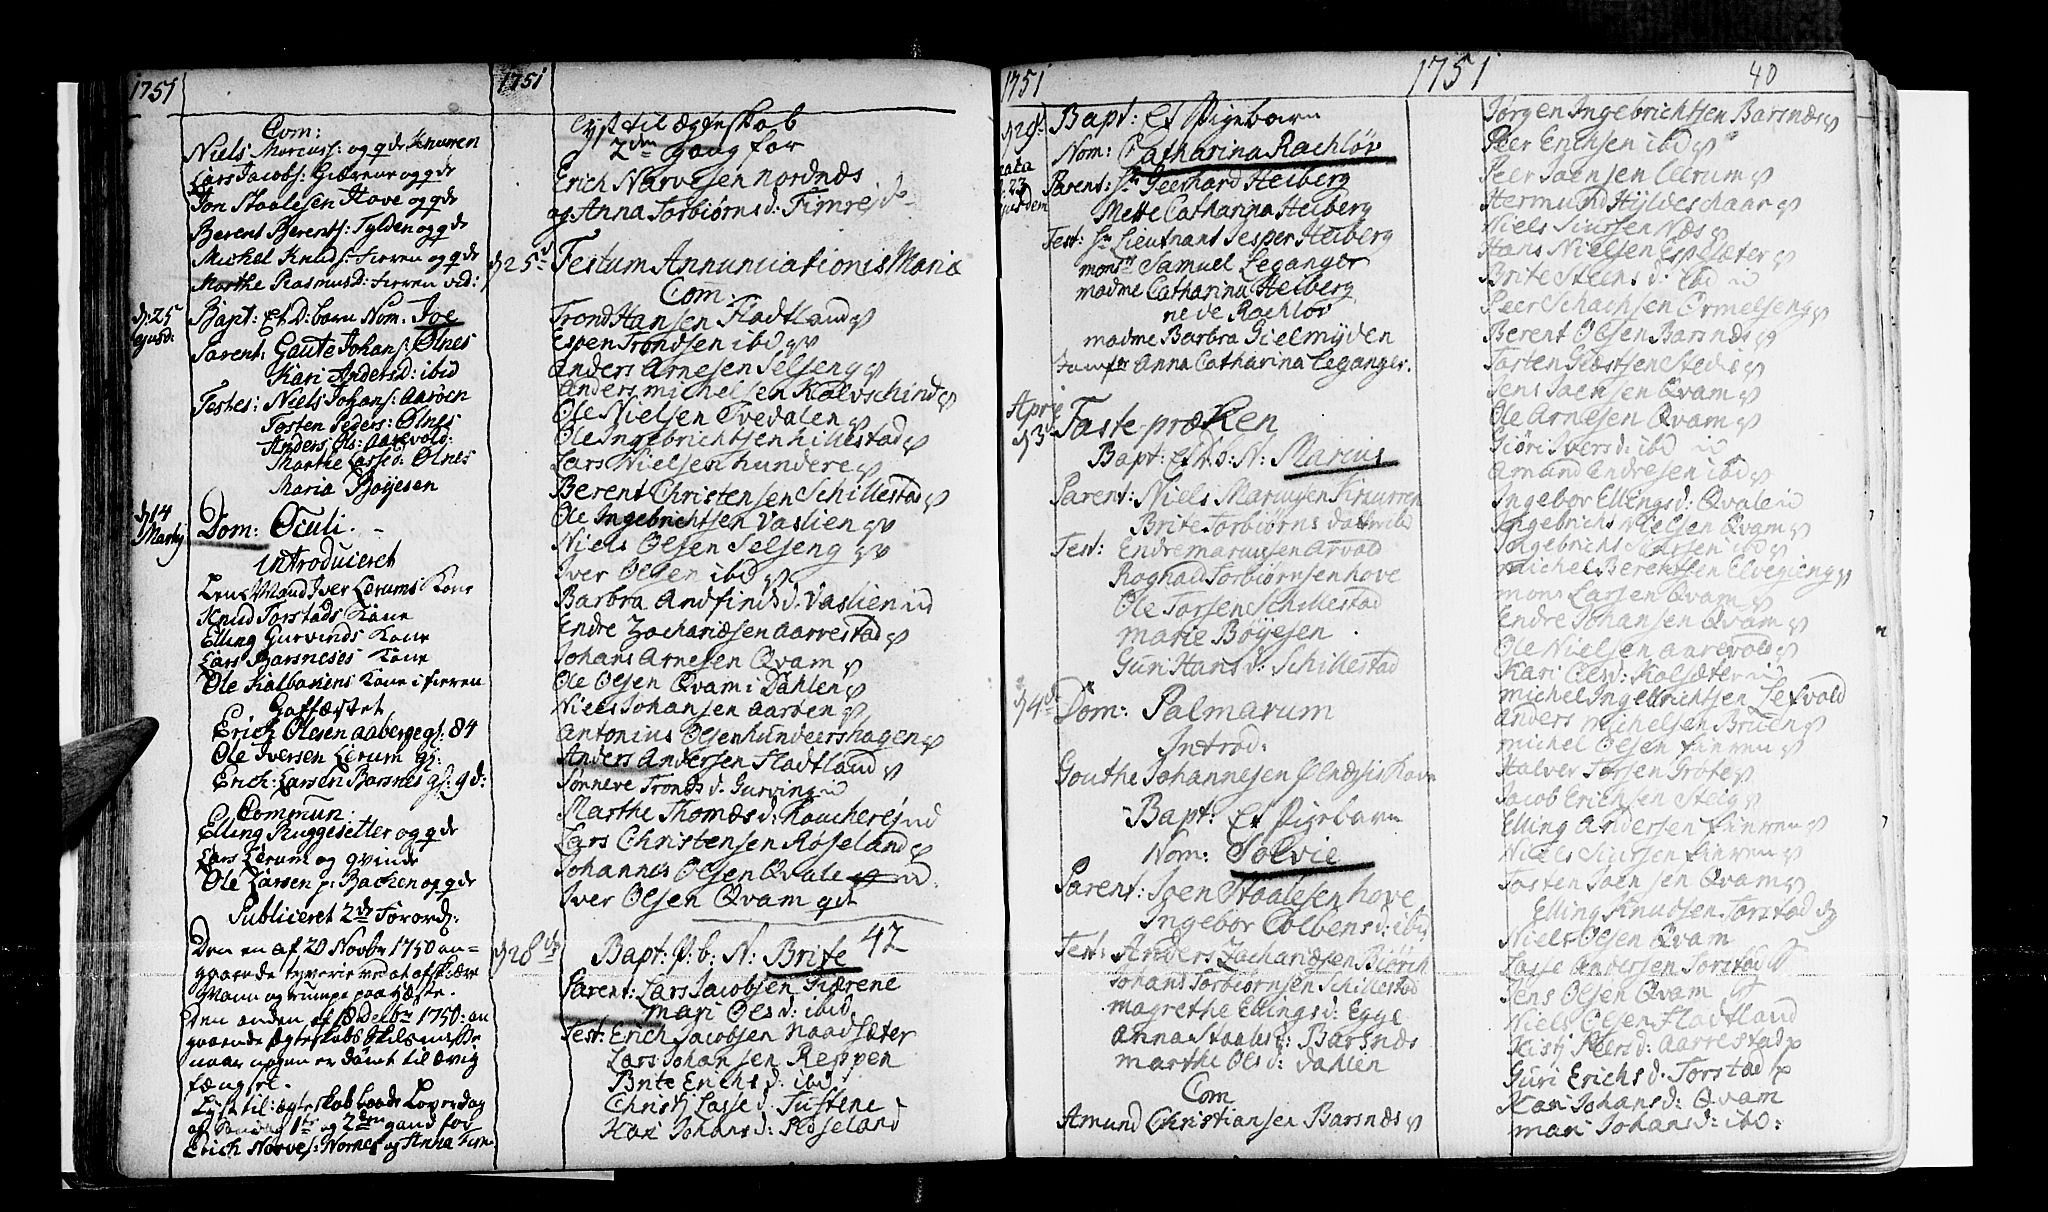 1751
Com:
Niels Marcus: og qde Knuren
Lars Jacobs: Giærene og qde
Jon Staalesen Hove og qde
Berent Berents: Tylden og qde
Michel Knuds: Fieren og qde
Marthe Rasmusd: Fieren vid:
d. 25 ejusd:
Bapt: et D: barn Nom. Joe
Parent: Gaute Johans: Ølnes
Kari Andersd: ibid
Testes: Niels Johans: Aarøen
Tosten Peders: Ølnes
Anders Ols: Aarevold:
Marthe Lassed: Ølnes
Maria Bøyesen
d. 14 Martij
Dom: Oculi.
Introduceret
Iver Lerums Kone
Knud Torstads Kone
Elling Gurvinds Kone
Lars Barsneses Kone
Ole Kalbakens Kone i fieren
Gaffæstet
Erich Olesen Aaberge gl: 84
Ole Iversen Lerum gl:
Erich Larsen Barsnes gl: 9 d:
Commun:
Elling Ruggesetter og qde
Lars Lerum og qvinde
Ole Larsen p: Backen og qde
Publiceret 2de Forord:
Den en af 20 Novbr 1750 an=
gaaende tyverie ved at afskiære
Mann og rumpe paa Hæste.
Den anden af 18 decbr 1750: an
gaaende Ægteskabs Skilsmisse
naar nogen er dømt til ævig
fængsel.
Lyst til ægteskab baade Løverdag
og Søndag 1te og 2den gang for
Erich Narves: Nornes og Anna Fim
1751
Lyst til ægteskab
2den gang for
Erich Narvesen Nordnæs
og Anna Torbiørnsd: Fimrejde
d. 25
Festum Annunciationis Mariæ
Com:
Trond Hansen Fladtland
Espen Trondsen ibd
Anders Arnesen Selseng
Anders Michelsen Kalvschind
Ole Nielsen Tvedalen
Ole Ingebrichtsen Hillestad
Lars Nielsen Hundere
Berent Christensen Schillestad
Ole Ingebrichtsen Vaslien
Niels Olsen Selseng
Iver Olsen ibd
Barbra Andfinds d. Vaslien
Endre Zachariæsen Aarrestad
Johans Arnesen Qvam
Ole Olsen Qvam i Dahlen
Niels Johansen Aarøen
Antonius Olsen Hundershagen
Anders Andersen Fladtland
Sønneve Tronds d. Gurving
Marthe Thomæs d: Kouchere
Lars Christensen Røseland
Johannes Olsen Qvale
Iver Olsen Qvam
d. 28de
Bapt: P: b: N: Brite 42
Parent: Lars Jacobsen Fiærene
Mari Ols d: ibid
Test: Erich Jacobsen Naadsæter
Lars Johansen Reppen
Brite Erichs d: ibd
Christj Lasse d: Tustene
Kari Johans d: Røseland
1751
d. 29
nata
d. 23
ejusdem
Bapt: Et Pigebarn
Nom: Catharina Rachløv
Parent: Hr Geerhard Heiberg
Mette Catharina Heiberg
Test: Hr Lieutnant Jesper Heiberg
Monsr Samuel Leganger
madme Catharina Heiberg
ne de Rachløv
madme Barbra Gielmyden
Jomfr Anna Catharina Leganger.
April
d. 3
Faste-præken
Bapt: et D: b: N: Marius
Parent: Niels Marinsen Knurren
Brite Torbiørns datter ibd
Test: Endre Mariusen Arvold
Rognald Torbiørnsen Hove
Ole Torsen Schillestad
Marie Bøyesen
Guri Hans d: Schillestad
d. 4de
Dom: Palmarum
Introd:
Gouthe Johannesen Ølnæsis Kone
Bapt: Et Pigebarn
Nom: Solvie
Parent: Joen Staalesen Hove
Ingebor Colbens d: ibd
Test: Anders Zachariæsen Biørch
Johans Torbiørnsen Schillestad
Magrethe Ellings d: Egge
Anna Staales d: Barsnæs
Marthe Ols d: Dahlen
Com
Amund Christiansen Barsnæs
1751
40
Jørgen Ingebrichtsen Barsnæs
Peer Erichsen ibd
Peer Joensen Lerum
Hermund Hyldeschaar
Niels Siursen Næs
Hans Nielsen Espesæter
Brite Steens d: ibd
Peer Schachsen Ormelseng
Berent Olsen Barsnæs
Torsten Giæstsen Stedie
Jens Joensen Qvam
Ole Arnesen Qvam
Giøri Ivers d: ibd
Amund Endresen ibd
Ingebor Ellings d: Qvale
Ingebricht Nielsen Qvam
Ingebricht Larsen ibd
Michel Berentsen Elvegieng
Mons Larsen Qvam
Endre Johansen Qvam
Ole Nielsen Aarevold
Kari Ols d: Kolsæter
Michel Ingebrichtsen Lefvold
Anders Michelsen Bruen
Michel Olsen fieren
Halver Torsen Grote
Jacob Erichsen Steig
Elling Andersen fieren
Niels Siursen fieren
Tosten Joensen Qvam
Elling Knudsen Torstad
Niels Olsen Qvam
Lasse Andersen Torstad
Jens Olsen Qvam
Niels Olsen Fladtland
Kistj Peers d: Aarrestad
Guri Erichs d. Torstad
Kari Johans d: Qvam
Mari Johans d: ibd: